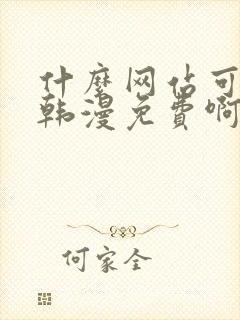 什麼网佔可
韩漫免費啊
何家全